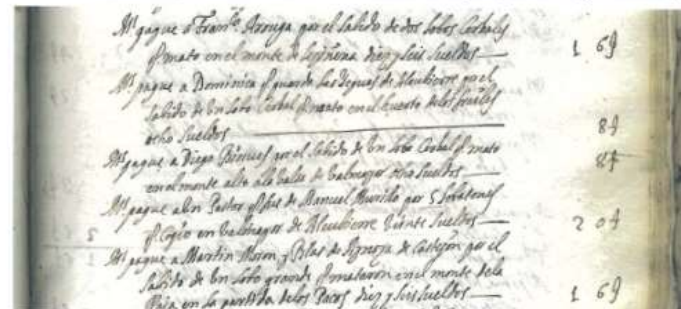 Mº pague a Franco Arruga por el Salido de dos Lobos Cerbales
q mato en el monte de Lesiñena diez y seis Sueldos — 1 6 ƒ
Mº pague a Dominica q guarda las Yeguas de Alcubierre por el
Salido de un Lobo Cerbal q mato en el huerto de los frailes
ocho Sueldos — 8 ƒ
Mº pague a Diego por el Salido de un Lobo Cerbal q mato
en el monte alto a la balsa de balmayor ocho Sueldos — 8 ƒ
Mº pague a un Pastor de Manuel Murillo por 5 Lobatones
q Cogio en balmayor de Alcubierre Veinte Sueldos — 2 0 ƒ
Mº pague a Martin Moron y Blas de de Castejon por el
Salido de un Lobo grande q mataron en el monte de la
en la partida de los diez y seis sueldos — 1 6 ƒ